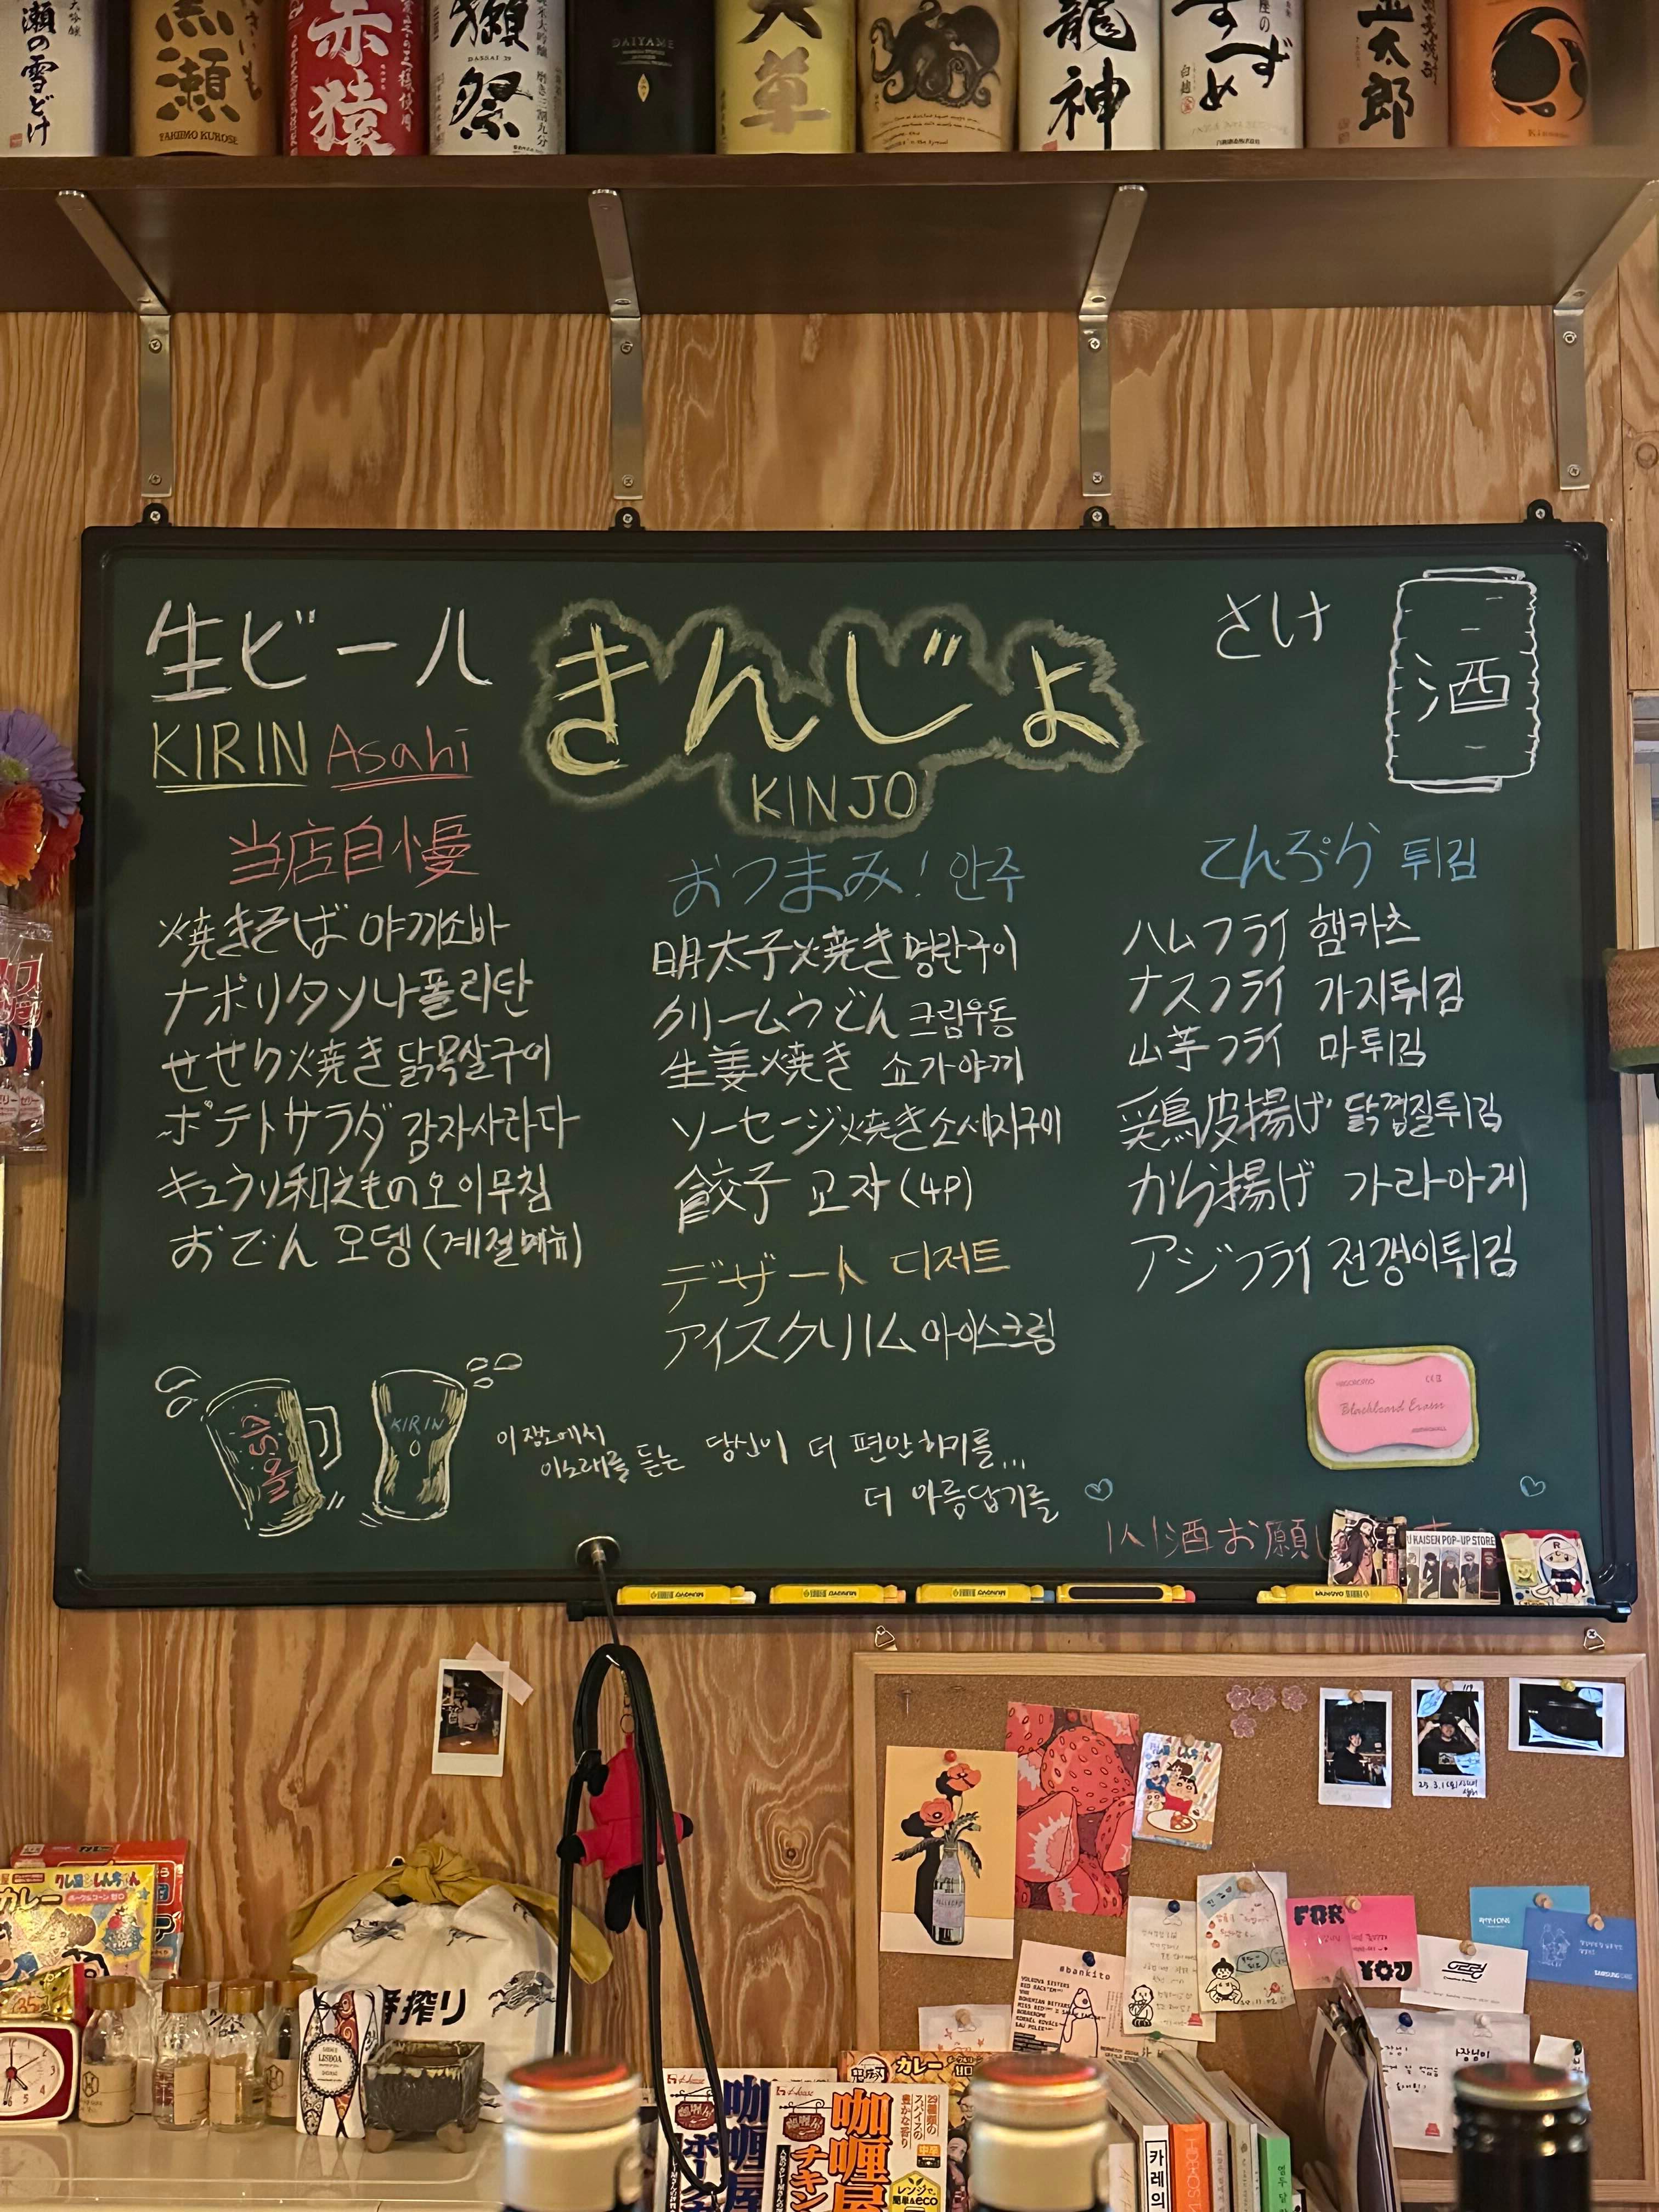 瀬の雪どけ
黒瀬
YAKIIMO KUROSE
赤猿
獺祭
DASSAI 39
磨き三割九分
DAIYAME
大草
龍神
すずめ
白麹
金太郎
生ビール
KIRIN Asahi
きんじょ
KINJO
さけ
酒
当店自慢
焼きそば 야끼소바
ナポリタン 나폴리탄
せせり焼き 닭목살구이
ポテトサラダ 감자사라다
キュウリ和えもの 오이무침
おでん 오뎅 (계절메뉴)
おつまみ! 안주
明太子焼き 명란구이
クリームうどん 크림우동
生姜焼き 쇼가야끼
ソーセージ焼き 소세지구이
餃子 교자 (4P)
デザート 디저트
アイスクリーム 아이스크림
てんぷら 튀김
ハムフライ 햄카츠
ナスフライ 가지튀김
山芋フライ 마튀김
鶏皮揚げ 닭껍질튀김
から揚げ 가라아게
アジフライ 전갱이튀김
Asahi
KIRIN
이 장소에서
이 노래를 듣는 당신이 더 편안하기를...
더 아름답기를
Blackboard Eraser
酒お願い
KAISEN POP-UP STORE
カレー
番搾り
LISBOA
@bankito
FOR
YOU
カレー
咖喱屋
咖喱屋
チキン
レンジで
簡単&eco
카레의